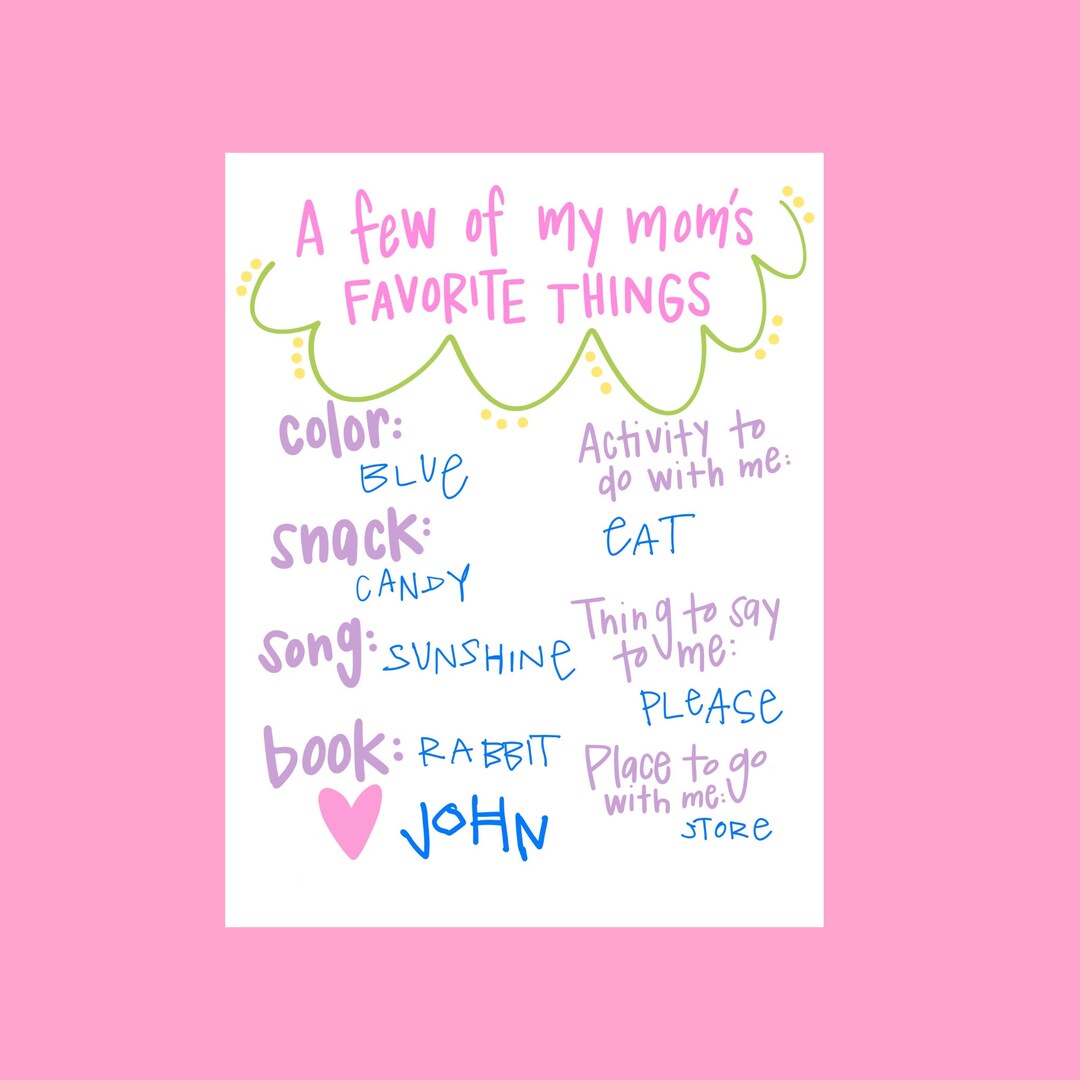 A few of my mom's
FAVORITE THINGS
color:
BLUE
snack:
CANDY
song: SUNSHINE
book: RABBIT
JOHN
Activity to
do with me:
EAT
Thing to say
to me:
PLEASE
Place to go
with me:
STORE